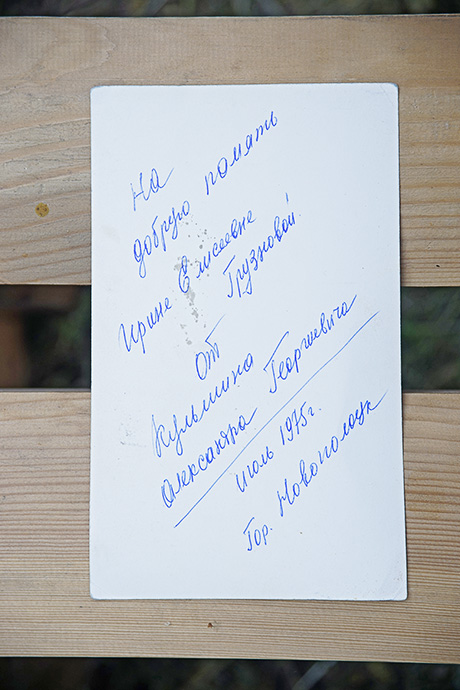 На
добрую память
Ирине Елисеевне
Грузновой.
От
Кульшина
Александра Георгиевича
июль 1975г.
Гор. Новополоцк